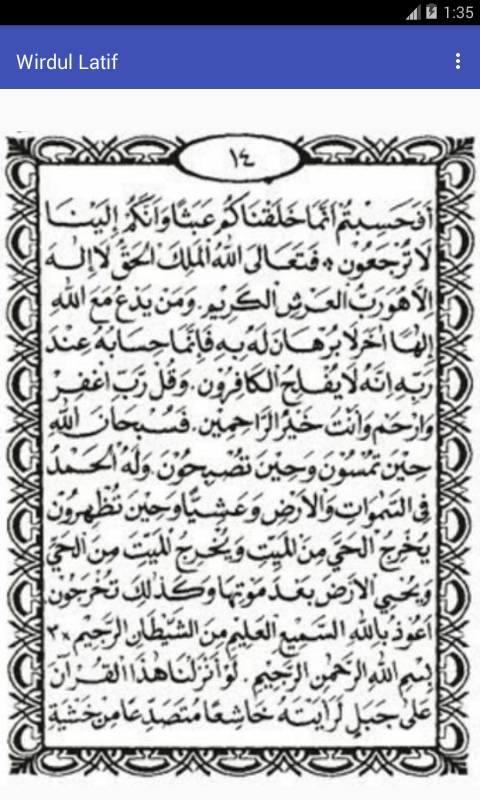 1:35
Wirdul Latif
١٤
أَفَحَسِبْتُمْ أَنَّمَا خَلَقْنَاكُمْ عَبَثًا وَأَنَّكُمْ إِلَيْنَا
لَا تُرْجَعُوْنَ، فَتَعَالَى اللهُ الْمَلِكُ الْحَقُّ لَا إِلٰهَ
إِلَّا هُوَ رَبُّ الْعَرْشِ الْكَرِيْمِ. وَمَنْ يَدْعُ مَعَ اللهِ
إِلٰهًا اٰخَرَ لَا بُرْهَانَ لَهُ بِهِ فَإِنَّمَا حِسَابُهُ عِنْدَ
رَبِّهِ اِنَّهُ لَا يُفْلِحُ الْكَافِرُوْنَ. وَقُلْ رَبِّ اغْفِرْ
وَارْحَمْ وَأَنْتَ خَيْرُ الرَّاحِمِيْنَ. فَسُبْحَانَ اللهِ
حِيْنَ تُمْسُوْنَ وَحِيْنَ تُصْبِحُوْنَ. وَلَهُ الْحَمْدُ
فِى السَّمٰوَاتِ وَالْاَرْضِ وَعَشِيًّا وَحِيْنَ تُظْهِرُوْنَ
يُخْرِجُ الْحَيَّ مِنَ الْمَيِّتِ وَيُخْرِجُ الْمَيِّتَ مِنَ الْحَيِّ
وَيُحْيِي الْاَرْضَ بَعْدَ مَوْتِهَا وَكَذٰلِكَ تُخْرَجُوْنَ.
اَعُوْذُ بِاللهِ السَّمِيْعِ الْعَلِيْمِ مِنَ الشَّيْطَانِ الرَّجِيْمِ ×٣
بِسْمِ اللهِ الرَّحْمٰنِ الرَّحِيْمِ. لَوْ أَنْزَلْنَا هٰذَا الْقُرْاٰنَ
عَلَى جَبَلٍ لَرَاَيْتَهُ خَاشِعًا مُتَصَدِّعًا مِنْ خَشْيَةِ